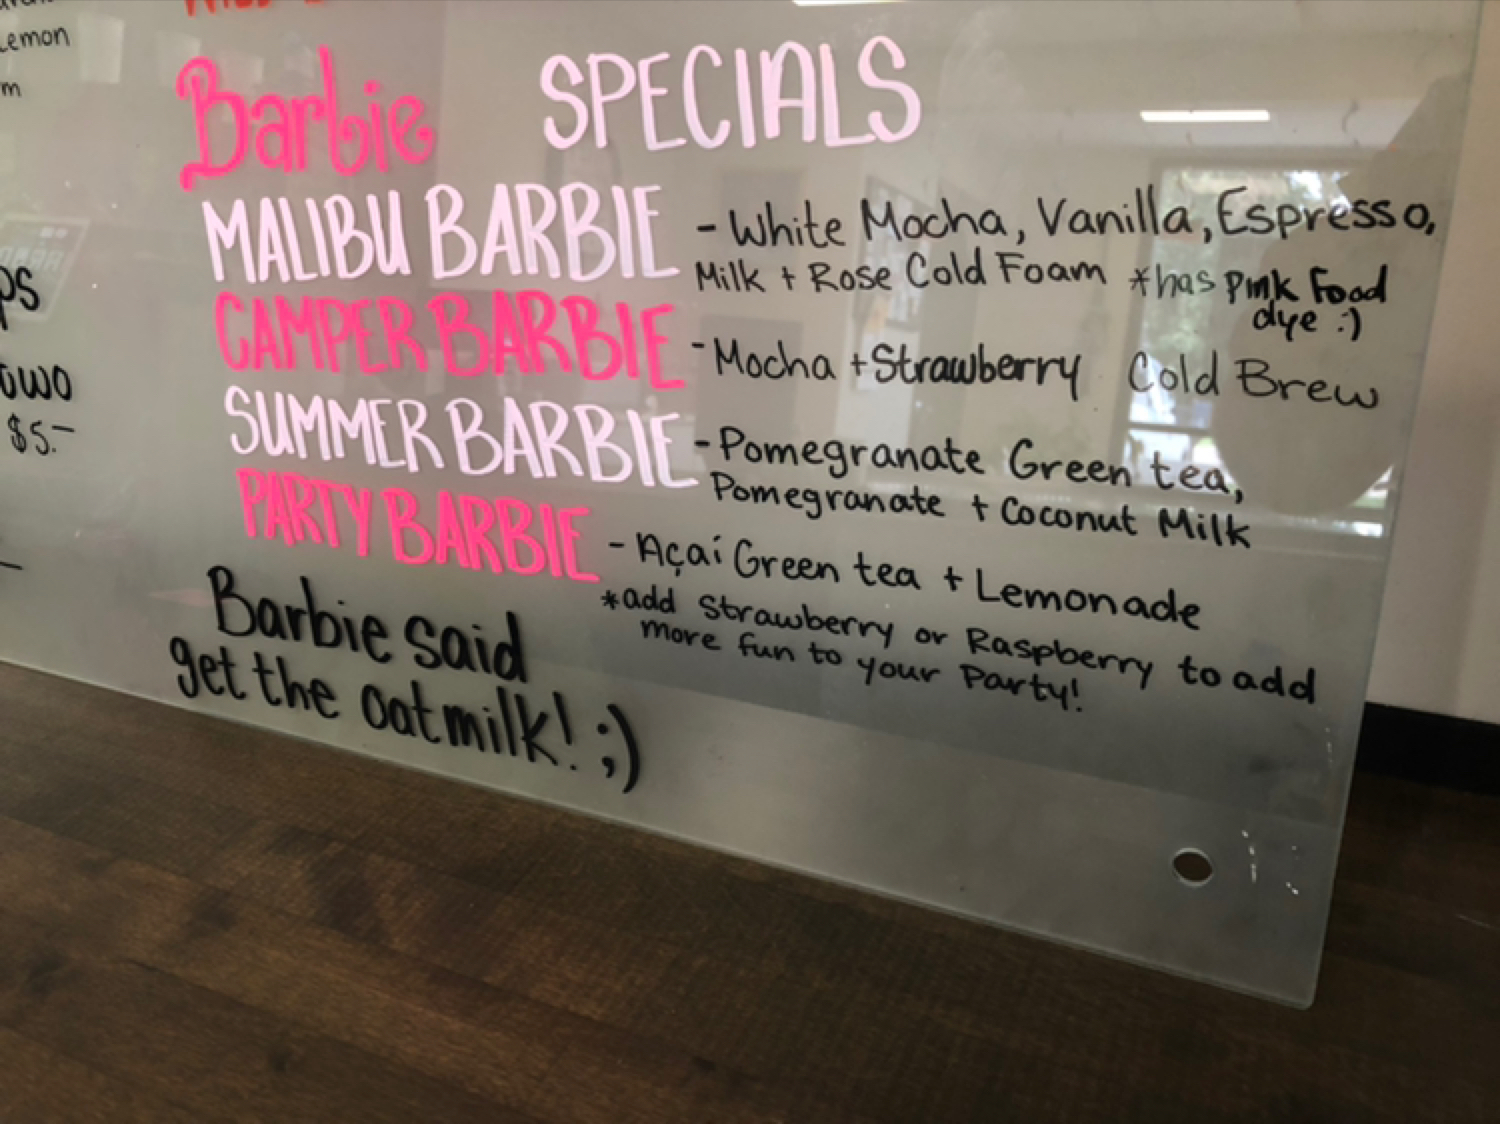 Lemon
m
ps
owo
$5.-
Barbie SPECIALS
MALIBU BARBIE - White Mocha, Vanilla, Espresso,
Milk + Rose Cold Foam *has Pink Food
dye :)
CAMPER BARBIE - Mocha + Strawberry Cold Brew
SUMMER BARBIE - Pomegranate Green tea,
Pomegranate + Coconut Milk
PARTY BARBIE - Açaí Green tea + Lemonade
*add Strawberry or Raspberry to add
more fun to your Party!
Barbie said
get the oatmilk! ;)